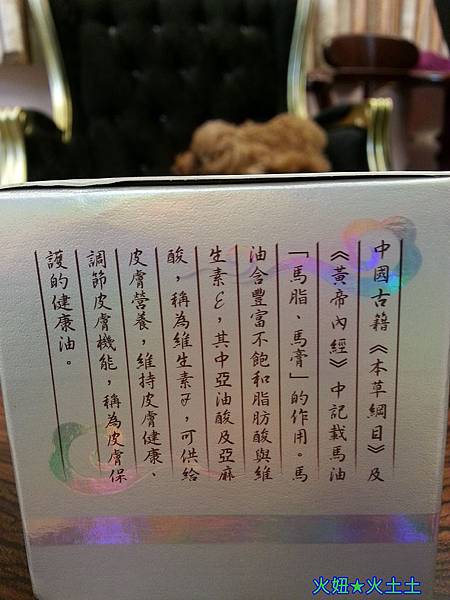 中國古籍《本草綱目》及
《黃帝內經》中記載馬油
「馬脂、馬膏」的作用。馬
油含豐富不飽和脂肪酸與維
生素E，其中亞油酸及亞麻
酸，稱為維生素F，可供給
皮膚營養，維持皮膚健康、
調節皮膚機能，稱為皮膚保
護的健康油。
火妞★火土土